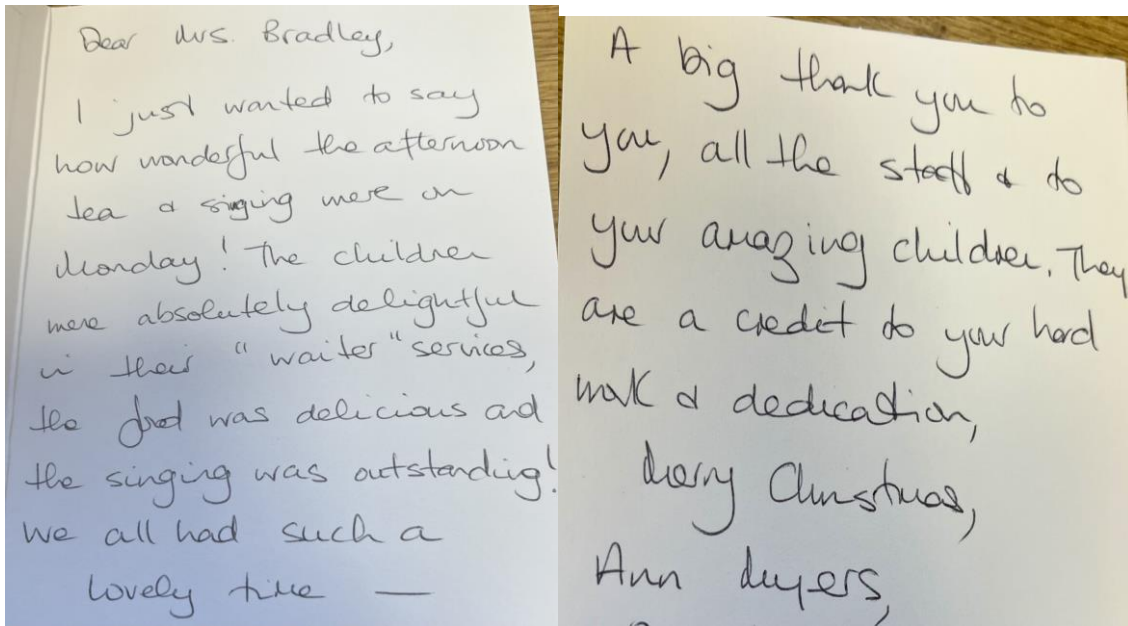 Dear Mrs. Bradley,
I just wanted to say
how wonderful the afternoon
tea & singing were on
Monday! The children
were absolutely delightful
in their "waiter" services,
the food was delicious and
the singing was outstanding!
We all had such a
lovely time —
A big thank you to
you, all the staff & to
your amazing children. They
are a credit to your hard
work & dedication,
Merry Christmas,
Ann Myers,